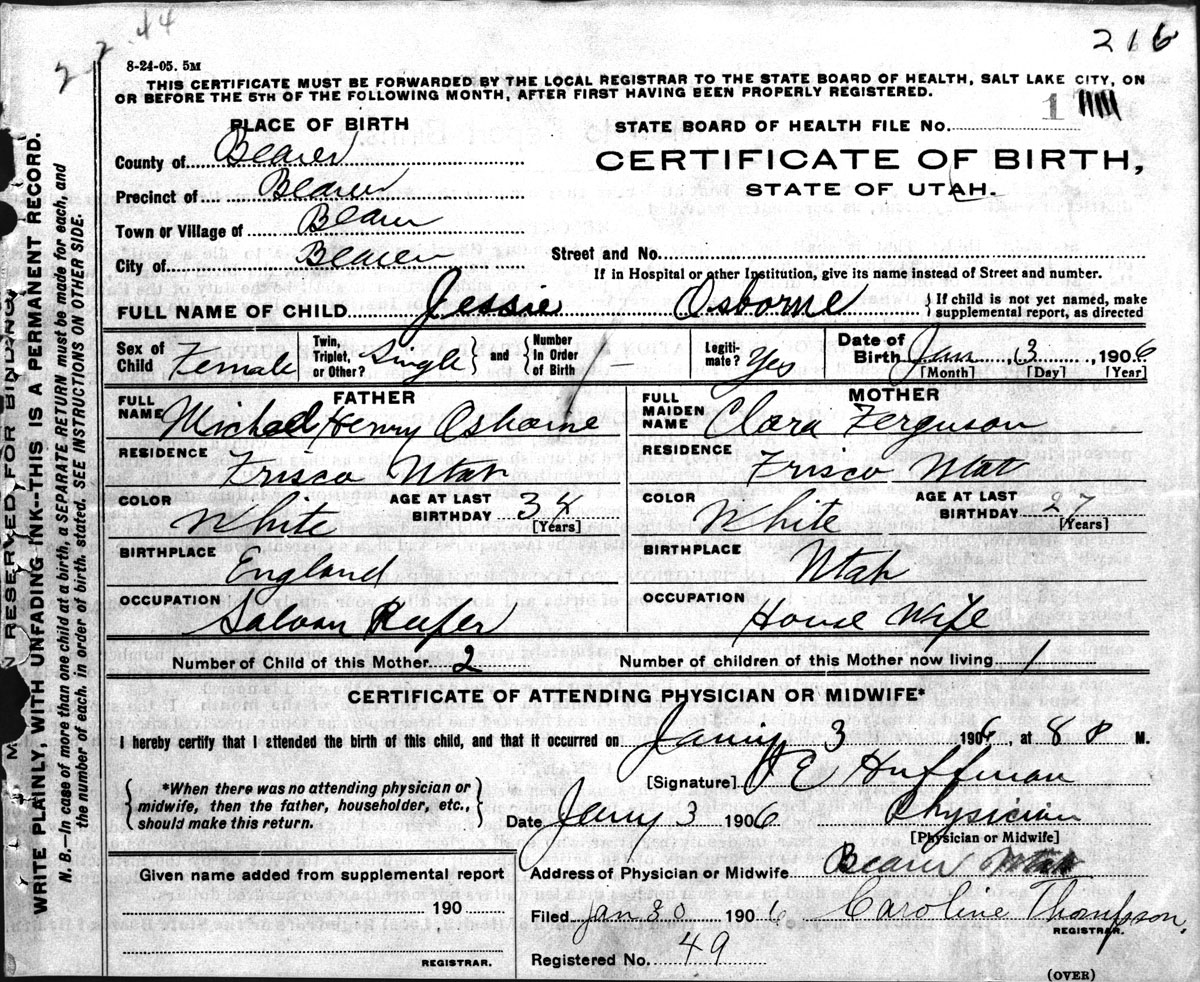 2 2 . 44
216
8-24-05. 5M
THIS CERTIFICATE MUST BE FORWARDED BY THE LOCAL REGISTRAR TO THE STATE BOARD OF HEALTH, SALT LAKE CITY, ON
OR BEFORE THE 5TH OF THE FOLLOWING MONTH, AFTER FIRST HAVING BEEN PROPERLY REGISTERED.
PLACE OF BIRTH
STATE BOARD OF HEALTH FILE No. 1
County of Beaver
CERTIFICATE OF BIRTH,
STATE OF UTAH.
Precinct of Beaver
Town or Village of Beaver
City of Beaver Street and No.
If in Hospital or other Institution, give its name instead of Street and number.
FULL NAME OF CHILD Jessie Osborne { If child is not yet named, make
supplemental report, as directed
Sex of Child Female Twin, Triplet, or Other? Single } and { Number In Order of Birth Legiti-mate? Yes Date of Birth Jan 3, 1906
[Month] [Day] [Year]
FATHER MOTHER
FULL NAME Michael Henry Osborne FULL MAIDEN NAME Clara Ferguson
RESIDENCE Frisco Utah RESIDENCE Frisco Utah
COLOR White AGE AT LAST BIRTHDAY 34 [Years] COLOR White AGE AT LAST BIRTHDAY 27 [Years]
BIRTHPLACE England BIRTHPLACE Utah
OCCUPATION Saloon Keeper OCCUPATION House Wife
Number of Child of this Mother 2 Number of children of this Mother now living 1
CERTIFICATE OF ATTENDING PHYSICIAN OR MIDWIFE*
I hereby certify that I attended the birth of this child, and that it occurred on Jany 3 1906, at 8 P M.
[Signature] E Huffman
{ *When there was no attending physician or
midwife, then the father, householder, etc.,
should make this return. }
Date Jany 3 1906 Physician
[Physician or Midwife]
Address of Physician or Midwife Beaver Utah
Given name added from supplemental report
190
REGISTRAR.
Filed Jan 30 1906 Caroline Thompson,
REGISTRAR.
Registered No. 49
(OVER)
MARGIN RESERVED FOR BINDING
WRITE PLAINLY, WITH UNFADING INK--THIS IS A PERMANENT RECORD.
N. B.—In case of more than one child at a birth, a SEPARATE RETURN must be made for each, and
the number of each, in order of birth, stated. SEE INSTRUCTIONS ON OTHER SIDE.